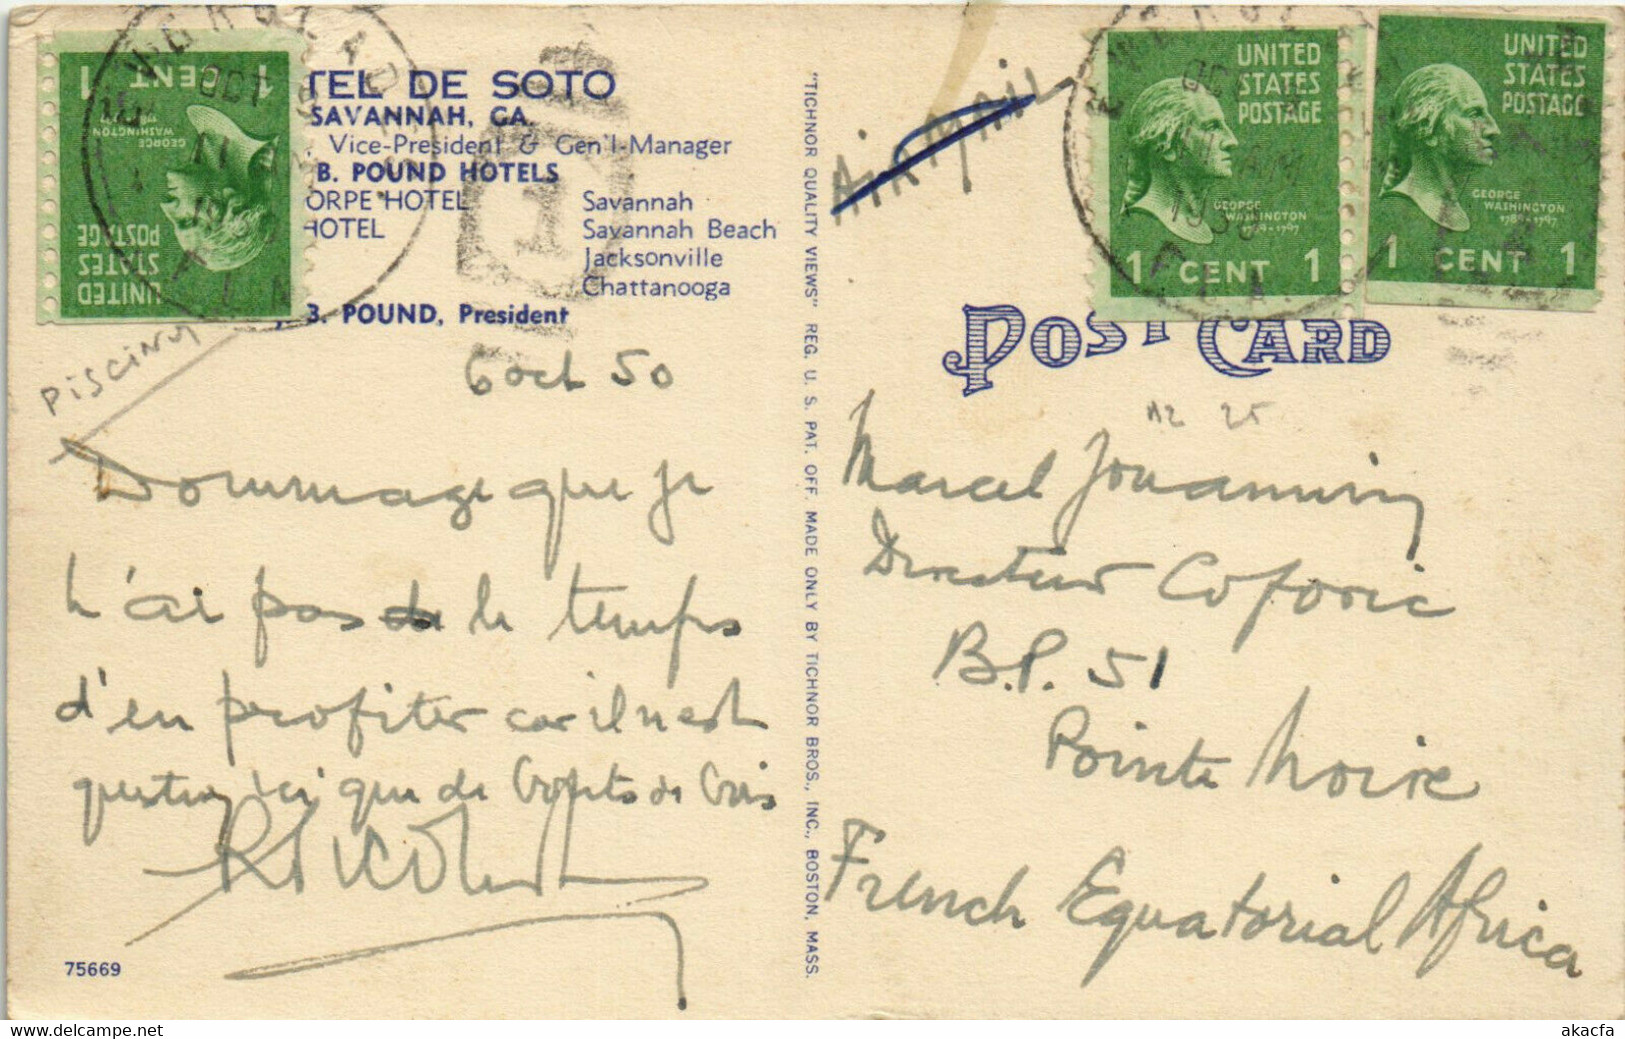 TEL DE SOTO
SAVANNAH, GA.
Vice-President & Gen'l-Manager
B. POUND HOTELS
ORPE HOTEL Savannah
HOTEL Savannah Beach
Jacksonville
Chattanooga
B. POUND, President
1 CENT 1
GEORGE
WASHINGTON
1789-1797
UNITED
STATES
POSTAGE
piscine
6 oct 50
Dommage que je
n'ai pas le temps
d'en profiter car il n'est
question ici que de de
75669
"TICHNOR QUALITY VIEWS" REG. U. S. PAT. OFF. MADE ONLY BY TICHNOR BROS., INC., BOSTON, MASS.
Air Mail
UNITED
STATES
POSTAGE
GEORGE
WASHINGTON
1789-1797
1 CENT 1
UNITED
STATES
POSTAGE
GEORGE
WASHINGTON
1789-1797
1 CENT 1
POST CARD
Marcel Jouannin
Directeur Coforic
B.P. 51
Pointe Noire
French Equatorial Africa
www.delcampe.net
akacfa